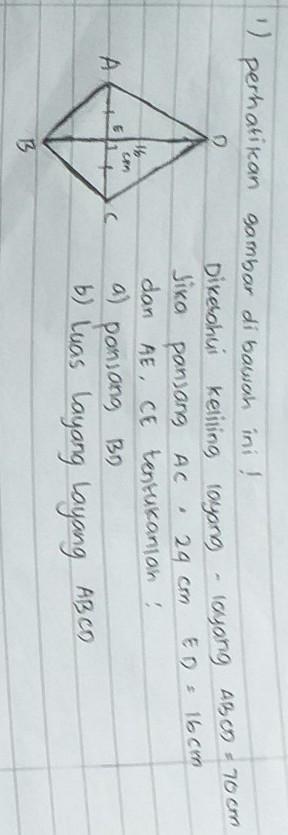 1) perhatikan gambar di bawah ini !
D
A
E
16
cm
C
B
Diketahui keliling layang - layang ABCD = 70 cm
Jika panjang AC = 24 cm ED = 16 cm
dan AE, CE tentukanlah !
a) panjang BD
b) Luas layang layang ABCD